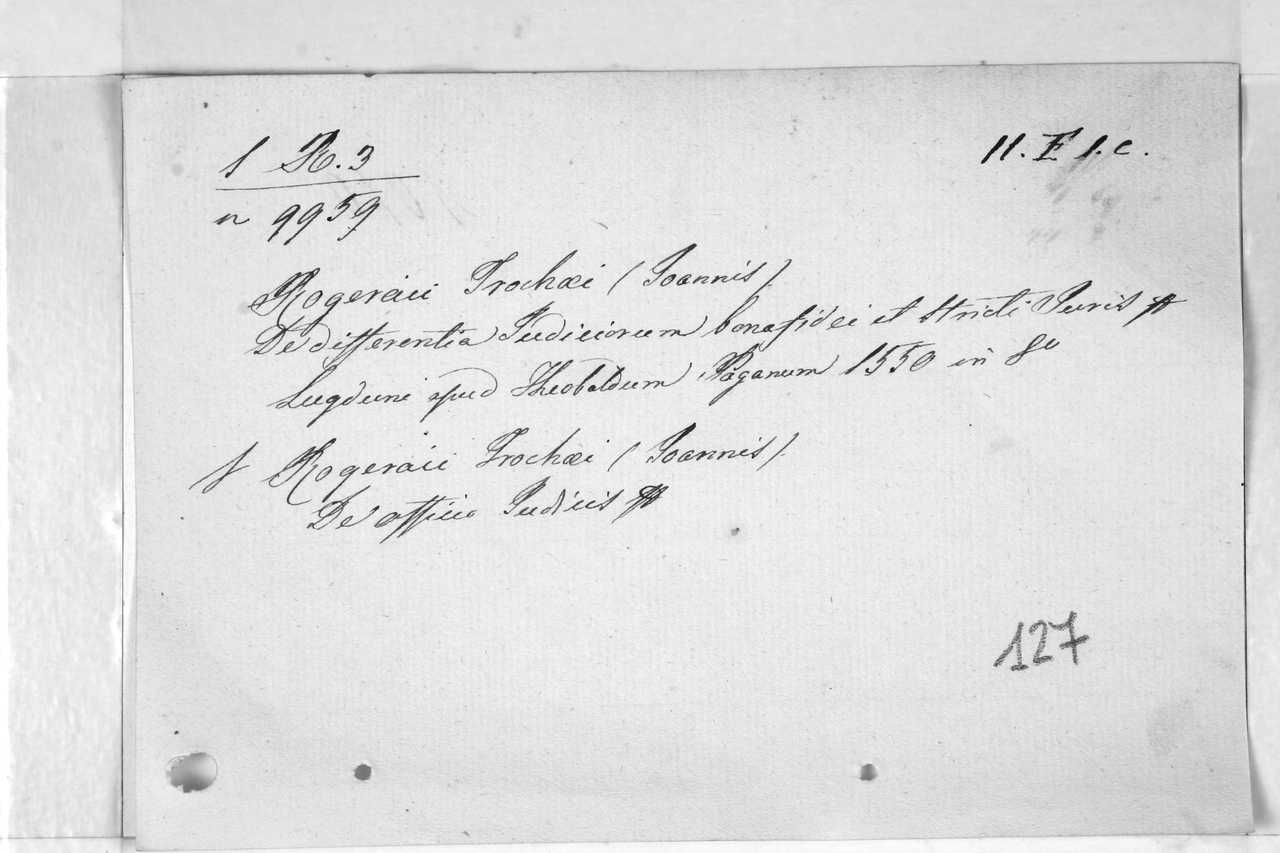 1 R. 3
11. F 1. c.
n 9959
Rogeraii Trochæi (Joannis).
De differentia Judiciorum bonafidei et Stricti Juris
Lugduni apud Theobaldum Paganum 1550 in 8º
Rogeraii Trochæi (Joannis).
De officio Judicis
127